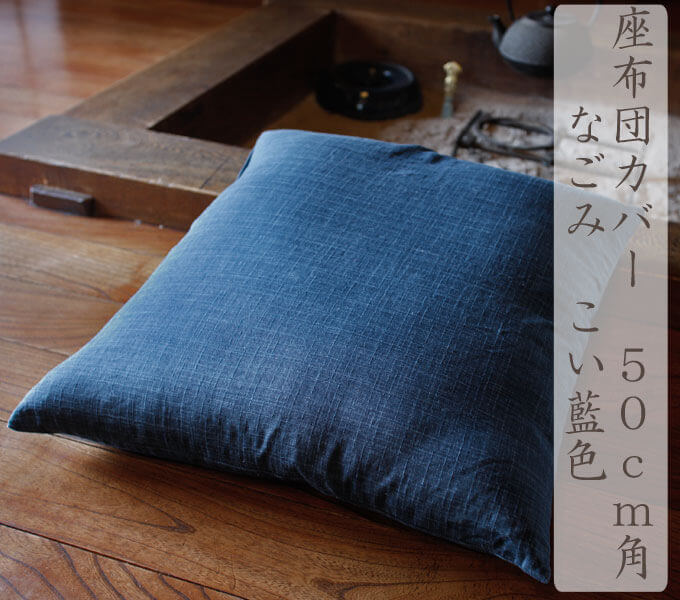 座布団カバー 50cm角
なごみ こい藍色